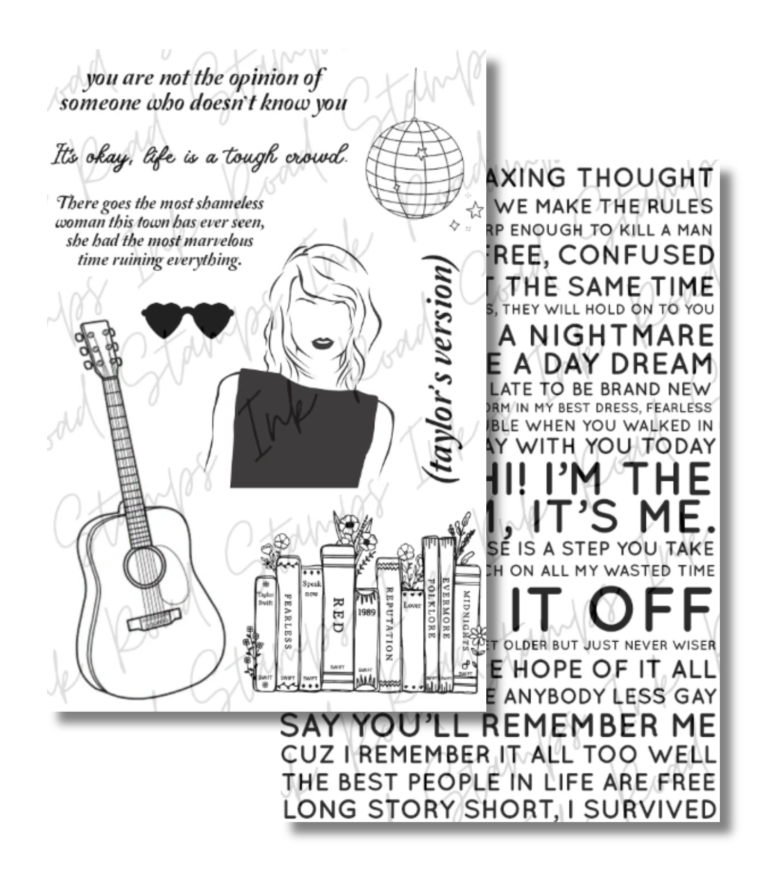 you are not the opinion of
someone who doesn't know you
It's okay, life is a tough crowd.
There goes the most shameless
woman this town has ever seen,
she had the most marvelous
time ruining everything.
(taylor's version)
Taylor Swift
FEARLESS
SWIFT
Speak now
SWIFT
RED
SWIFT
1989
SWIFT
REPUTATION
Lover
FOLKLORE
SWIFT
EVERMORE
SWIFT
MIDNIGHTS
SWIFT
AXING THOUGHT
WE MAKE THE RULES
RP ENOUGH TO KILL A MAN
FREE, CONFUSED
T THE SAME TIME
S, THEY WILL HOLD ON TO YOU
A NIGHTMARE
E A DAY DREAM
LATE TO BE BRAND NEW
ORM IN MY BEST DRESS, FEARLESS
UBLE WHEN YOU WALKED IN
AY WITH YOU TODAY
HI! I'M THE
M, IT'S ME.
SE IS A STEP YOU TAKE
CH ON ALL MY WASTED TIME
IT OFF
ET OLDER BUT JUST NEVER WISER
E HOPE OF IT ALL
E ANYBODY LESS GAY
SAY YOU'LL REMEMBER ME
CUZ I REMEMBER IT ALL TOO WELL
THE BEST PEOPLE IN LIFE ARE FREE
LONG STORY SHORT, I SURVIVED
Ink Road Stamps